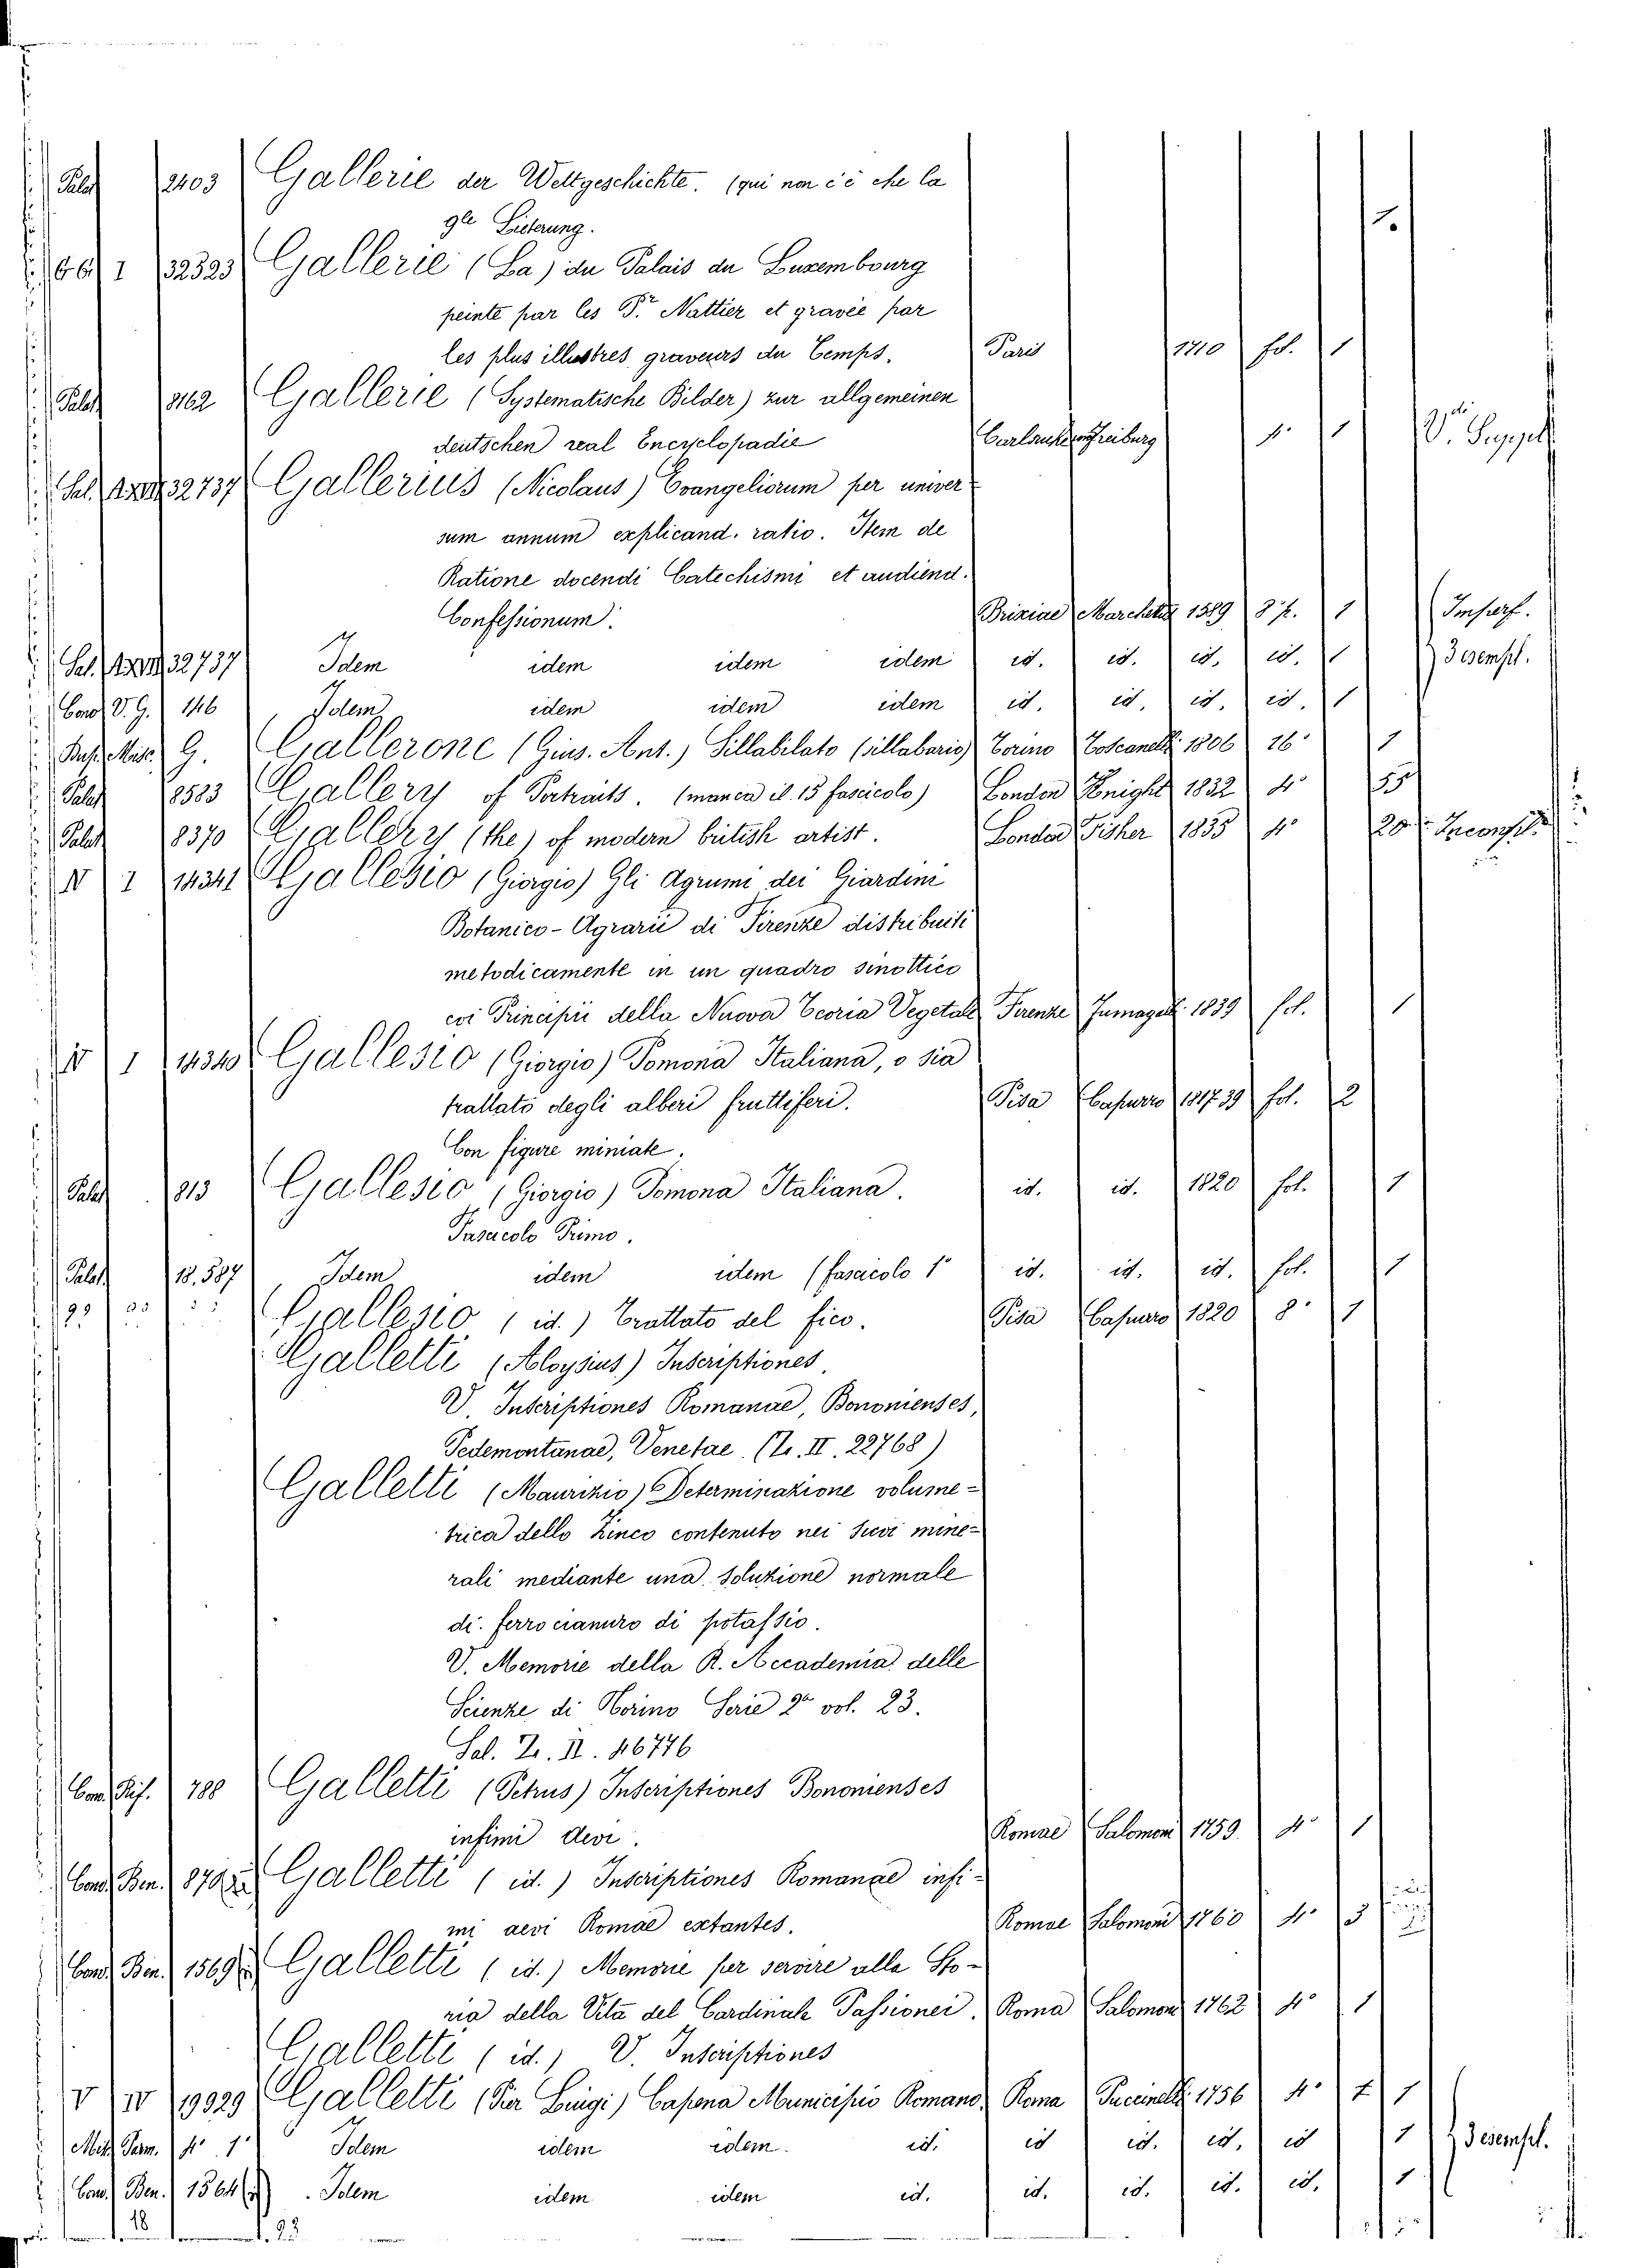 Palat 2403 Gallerie der Weltgeschichte. (qui non c'è che la
9te Lieterung. 1.
1 32323 Gallerie (La) du Palais du Luxembourg
peinte par les Sr. Nattier et gravée par
les plus illustres graveurs du Temps. Paris 1710 fol. 1
Palat 8162 Gallerie (Systematische Bilder) zur allgemeinen
deutschen real Encyclopadie Freiburg 4° 1 V. Suppl
Sal. 32737 Gallerius (Nicolaus) Evangeliorum per univer-
sum annum explicand. ratio. Item de
Ratione docendi Catechismi et audiend.
Confessionum. Brixiae Marchetti 1589 8° p. 1 Imperf.
Sal. 32737 Idem idem idem idem id. id. id. id. 1 3 esempl.
Cand V. G. 146 Idem idem idem idem id. id. id. id. 1
Misc. G. Gallerone (Gius. Ant.) Sillabilato (sillabario) Torino Toscanelli 1806 16° 1
Palat 8583 Gallery of Portraits. (manca il 15 fascicolo) London Knight 1832 4° 55
Palat 8370 Gallery (the) of modern british artist. London Fisher 1835 4° 20 Incompl.
N 1 14341 Gallesio (Giorgio) Gli Agrumi dei Giardini
Botanico-Agrarii di Firenze distribuiti
metodicamente in un quadro sinottico
coi Principii della Nuova Teoria Vegetale Firenze Fumagalli 1839 fol. 1
N 1 14340 Gallesio (Giorgio) Pomona Italiana, o sia
trattato degli alberi fruttiferi. Pisa Capurro 1817-39 fol. 2
Con figure miniate.
Palat 813 Gallesio (Giorgio) Pomona Italiana. id. id. 1820 fol. 1
Fascicolo Primo.
Palat. 18.587 Idem idem idem (fascicolo 1° id. id. id. fol. 1
Gallesio (id.) Trattato del fico. Pisa Capurro 1820 8° 1
Galletti (Aloysius) Inscriptiones
V. Inscriptiones Romanae, Bononienses,
Pedemontanae, Venetae. (Tr. II. 22768)
Galletti (Maurizio) Determinazione volume-
trica dello Zinco contenuto nei suoi mine-
rali mediante una soluzione normale
di ferrocianuro di potassio.
V. Memorie della R. Accademia delle
Scienze di Torino Serie 2a vol. 23.
Sal. Tr. II. 46776
Cand. Rif. 788 Galletti (Petrus) Inscriptiones Bononienses
infimi aevi. Romae Salomoni 1759. 4° 1
Cand. Ben. Galletti (id.) Inscriptiones Romanae infi-
mi aevi Romae extantes. Romae Salomoni 1760 4° 3
Cand. Ben. 1569 Galletti (id.) Memorie per servire alla Sto-
ria della Vita del Cardinale Passionei. Roma Salomoni 1762 4° 1
Galletti (id.) V. Inscriptiones
V IV 19929 Galletti (Pier Luigi) Capena Municipio Romano Roma Puccinelli 1756 4° 1
Misc. Parm. 4° 1° Idem idem idem. id. id id. id. id 1 3 esempl.
Cand. Ben. 1564 Idem idem idem id. id. id. id. id. 1
18 23